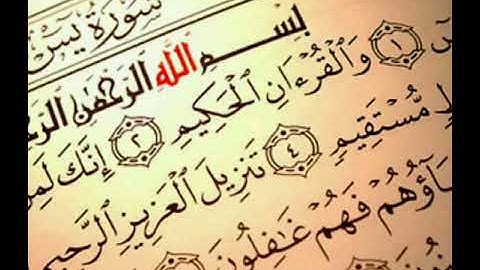 سورة يس
بسم الله الرحمن الر
١ وَالْقُرْءَانِ الْحَكِيمِ ٢ إِنَّكَ لَمِنَ
مُّسْتَقِيمٍ ٤ تَنزِيلَ الْعَزِيزِ الرَّحِيمِ
فَهُمْ غَٰفِلُونَ